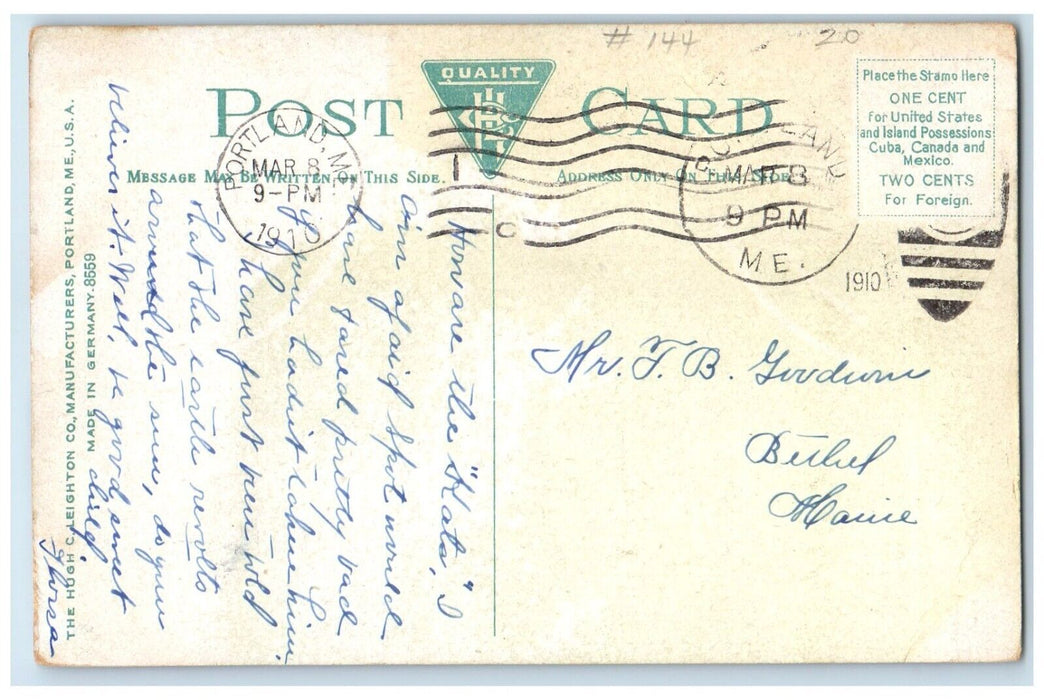 # 144 20
POST CARD
QUALITY
HLC
Place the Stamp Here
ONE CENT
for United States
and Island Possessions
Cuba, Canada and
Mexico.
TWO CENTS
For Foreign.
MESSAGE MAY BE WRITTEN ON THIS SIDE.
ADDRESS ONLY ON THIS SIDE
PORTLAND, ME.
MAR 8
9-PM
1910
PORTLAND
MAR 8
9 PM
ME.
1910
How are the "Kats," I
am afraid Spot would
have fared pretty bad
if you hadn't taken him.
I have just been told
that the earth revolts
around the sun, do you
believe it. Well, be good sweet
child.
Mr. F. B. Goodwin
Bethel
Maine
THE HUGH C. LEIGHTON CO., MANUFACTURERS, PORTLAND, ME., U.S.A.
MADE IN GERMANY. 8559